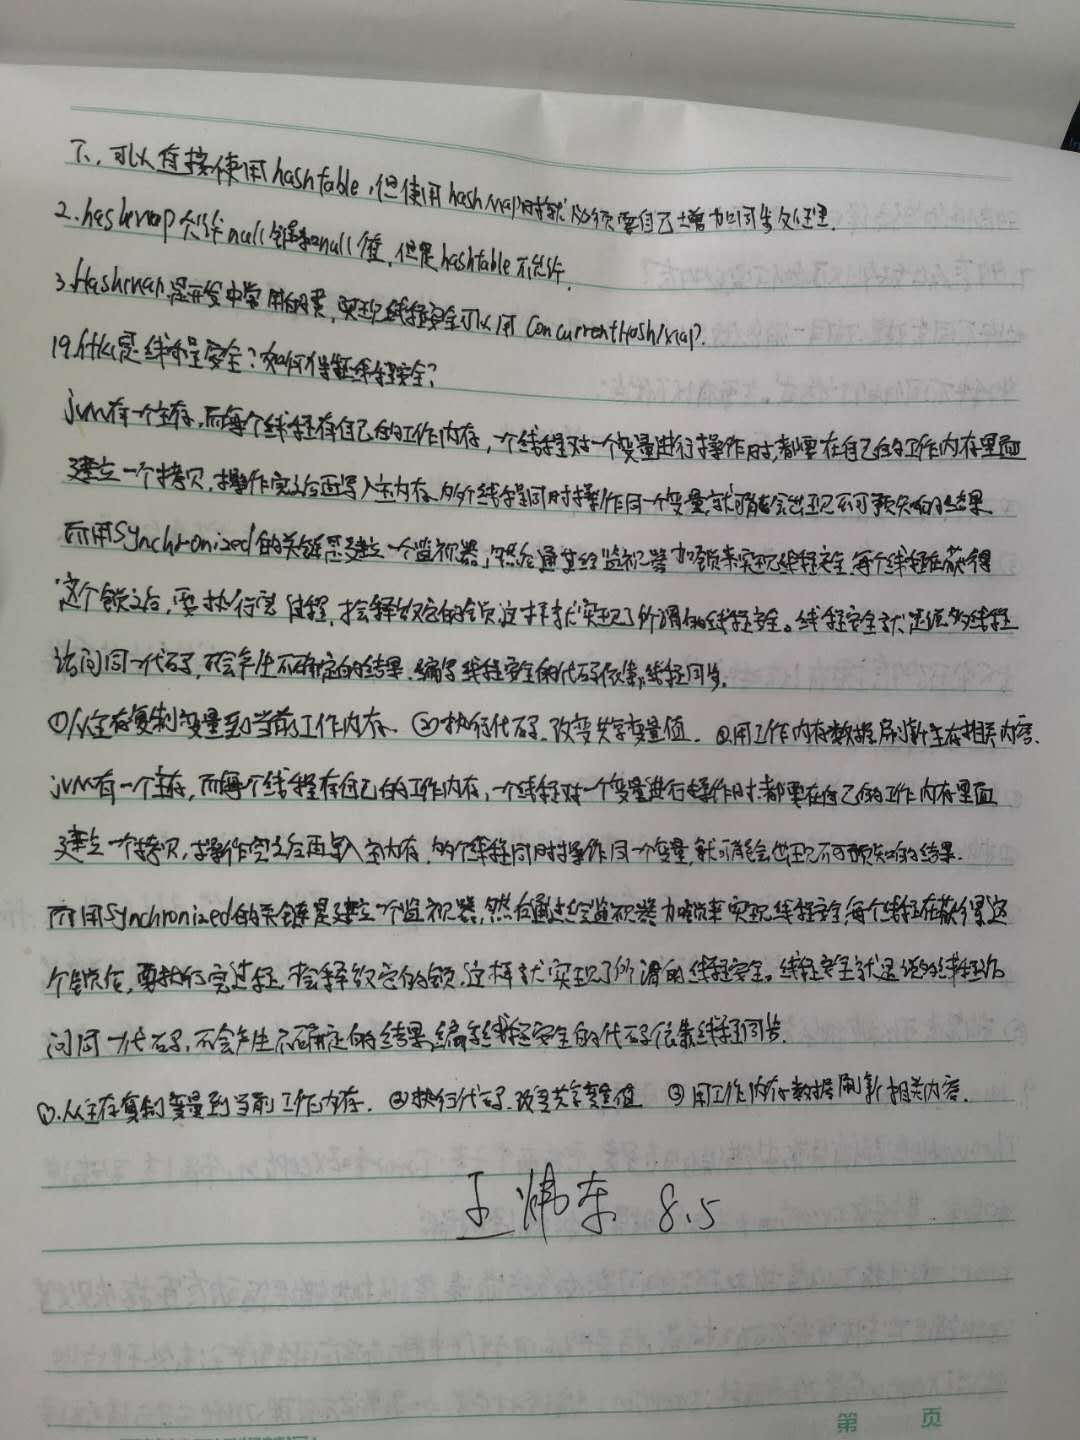 下,可以直接使用hashtable,但使用hashmap时就必须要自己增加同步处理.
2.hashmap允许null键和null值,但是hashtable不允许.
3.Hashmap是开发中常用的类,实现线程安全可以用ConcurrentHashMap.
19.什么是线程安全?如何保证线程安全?
jvm有一个主存,而每个线程有自己的工作内存,一个线程对一个变量进行操作时,都要在自己的工作内存里面
建立一个拷贝,操作完之后再写入主内存.多个线程同时操作同一个变量,就可能会出现不可预知的结果.
而用synchronized的关键是建立一个监视器,然后通过给监视器加锁来实现线程安全,每个线程在获得
这个锁之后,要执行完过程,才会释放它的锁,这样就实现了所谓的线程安全。线程安全就是说多线程
访问同一代码,不会产生不确定的结果.编写线程安全的代码依靠线程同步.
①从主存复制变量到当前工作内存. ②执行代码,改变共享变量值. ③用工作内存数据刷新主存相关内容.
jvm有一个主存,而每个线程有自己的工作内存,一个线程对一个变量进行操作时,都要在自己的工作内存里面
建立一个拷贝,操作完之后再写入主内存,多个线程同时操作同一个变量,就可能会出现不可预知的结果.
而用synchronized的关键是建立一个监视器,然后通过给监视器加锁来实现线程安全,每个线程在获得这
个锁后,要执行完过程,才会释放它的锁,这样就实现了所谓的线程安全。线程安全就是说多线程访
问同一代码,不会产生不确定的结果,编写线程安全的代码依靠线程同步.
①.从主存复制变量到当前工作内存. ②执行代码,改变共享变量值 ③用工作内存数据刷新相关内容.
王炜东 8.5
第 页